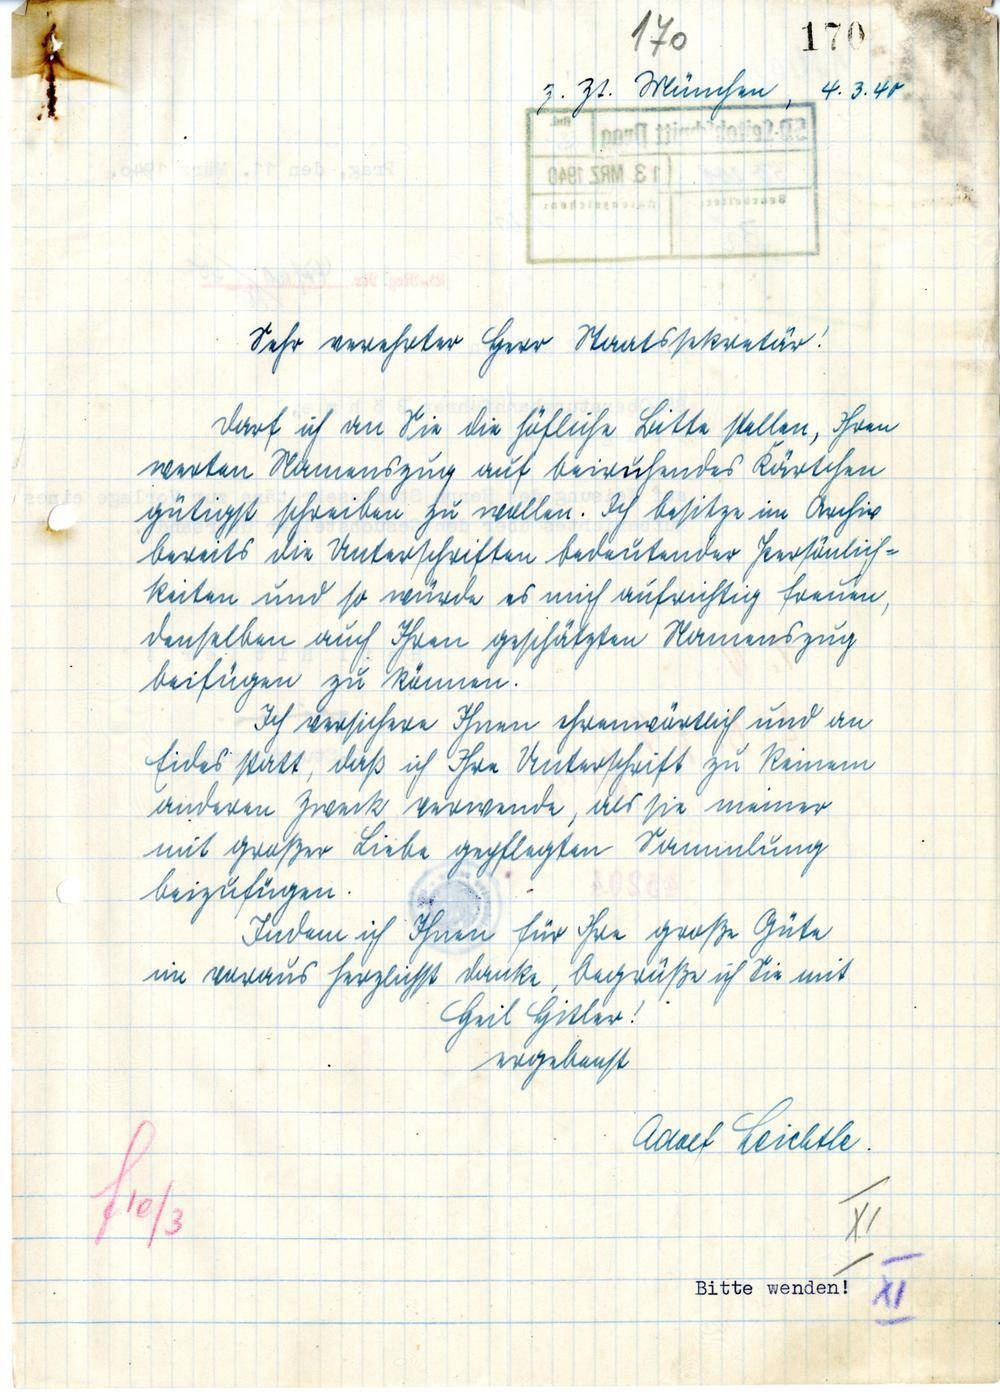 170
170
z. Zt. München, 4.3.40
SD-Leitabschnitt Prag
13. MRZ. 1940
Bearbeiter: Aktenzeichen:
Prag, den 11. März 1940.
Sehr verehrter Herr Staatssekretär!
Darf ich an Sie die höfliche Bitte stellen, Ihren
werten Namenszug auf beiruhendes Kärtchen
gütigst schreiben zu wollen. Ich besitze im Archiv
bereits die Unterschriften bedeutender Persönlich=
keiten und so würde es mich aufrichtig freuen,
denselben auch Ihren geschätzten Namenszug
beifügen zu können.
Ich versichere Ihnen ehrenwörtlich und an
Eides statt, daß ich Ihre Unterschrift zu keinem
anderen Zweck verwende, als sie meiner
mit großer Liebe gepflegten Sammlung
beizufügen.
Indem ich Ihnen für Ihre große Güte
im voraus herzlichst danke, begrüße ich Sie mit
Heil Hitler!
ergebenst
Adolf Leichtle.
10/3
XI
Bitte wenden! XI